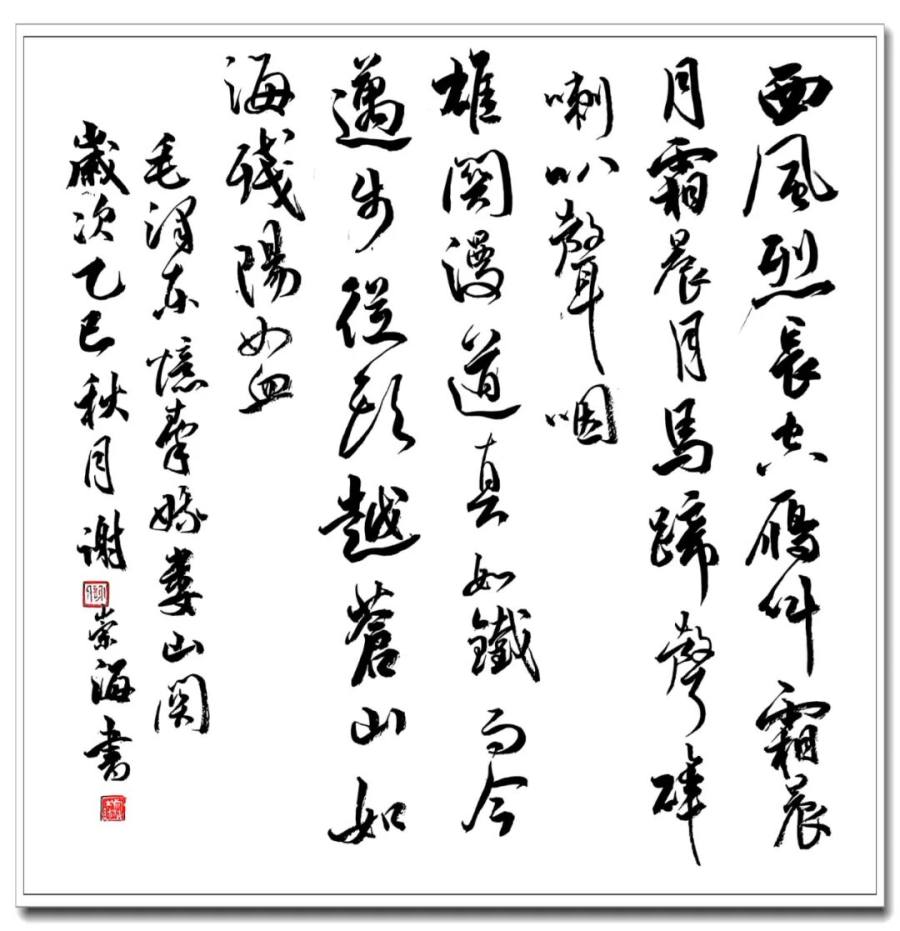 西風烈長空雁叫霜晨
月霜晨月馬蹄聲碎
喇叭聲咽
雄関漫道真如鐵而今
邁步從頭越蒼山如
海殘陽如血
毛澤東憶秦娥婁山関
歲次乙巳秋月謝崇海書